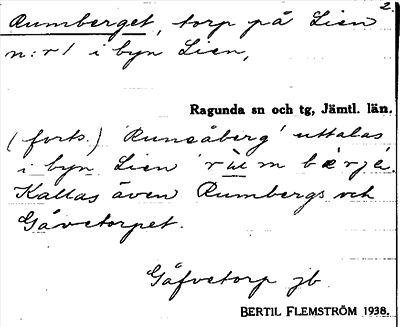 2.
Rumberget, torp på Lien
n:r 1 i byn Lien,
Ragunda sn och tg, Jämtl. län.
(forts.) 'Runsåberg' uttalas
i byn Lien
Kallas även Rumbergs och
Gåvetorpet.
Gåfvetorp jb
BERTIL FLEMSTRÖM 1938.